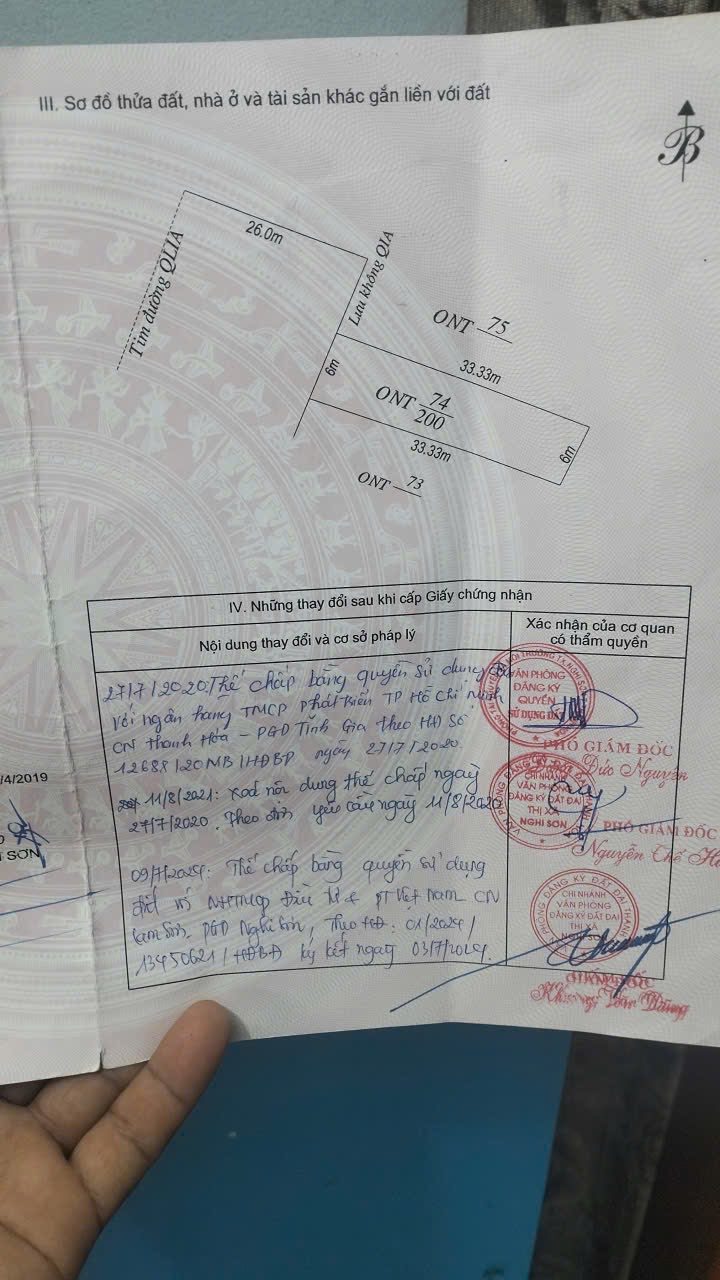 III. Sơ đồ thửa đất, nhà ở và tài sản khác gắn liền với đất
B
26.0m
Tim đường QL1A
Lưu không Q1A
ONT 75
33.33m
6m
ONT 74
200
33.33m
6m
ONT 73
IV. Những thay đổi sau khi cấp Giấy chứng nhận
Nội dung thay đổi và cơ sở pháp lý
Xác nhận của cơ quan
có thẩm quyền
27/7/2020: Thế chấp bằng quyền sử dụng đất
với ngân hàng TMCP phát triển TP Hồ Chí Minh
CN Thanh Hóa - PGD Tĩnh Gia theo HĐ Số
12688/20MB/HĐBĐ ngày 27/7/2020
11/8/2021: Xoá nội dung thế chấp ngày
27/7/2020. Theo đơn yêu cầu ngày 11/8/
09/7/2024: Thế chấp bằng quyền sử dụng
đất với NHTMCP Đầu Tư & PT Việt Nam CN
Lam Sơn, PGD Nghi Sơn, Theo HĐ: 01/2024/
13450621/HĐBĐ ký kết ngày 03/7/2024.
VĂN PHÒNG
ĐĂNG KÝ
QUYỀN
SỬ DỤNG ĐẤT
PHÓ GIÁM ĐỐC
Đức Nguyên
CHI NHÁNH
VĂN PHÒNG
ĐĂNG KÝ ĐẤT ĐAI
THỊ XÃ
NGHI SƠN
PHÓ GIÁM ĐỐC
Nguyễn Thế
VĂN PHÒNG ĐĂNG KÝ ĐẤT ĐAI THANH
CHI NHÁNH
VĂN PHÒNG
ĐĂNG KÝ ĐẤT ĐAI
THỊ XÃ
NGHI SƠN
GIÁM ĐỐC
/4/2019
SƠN